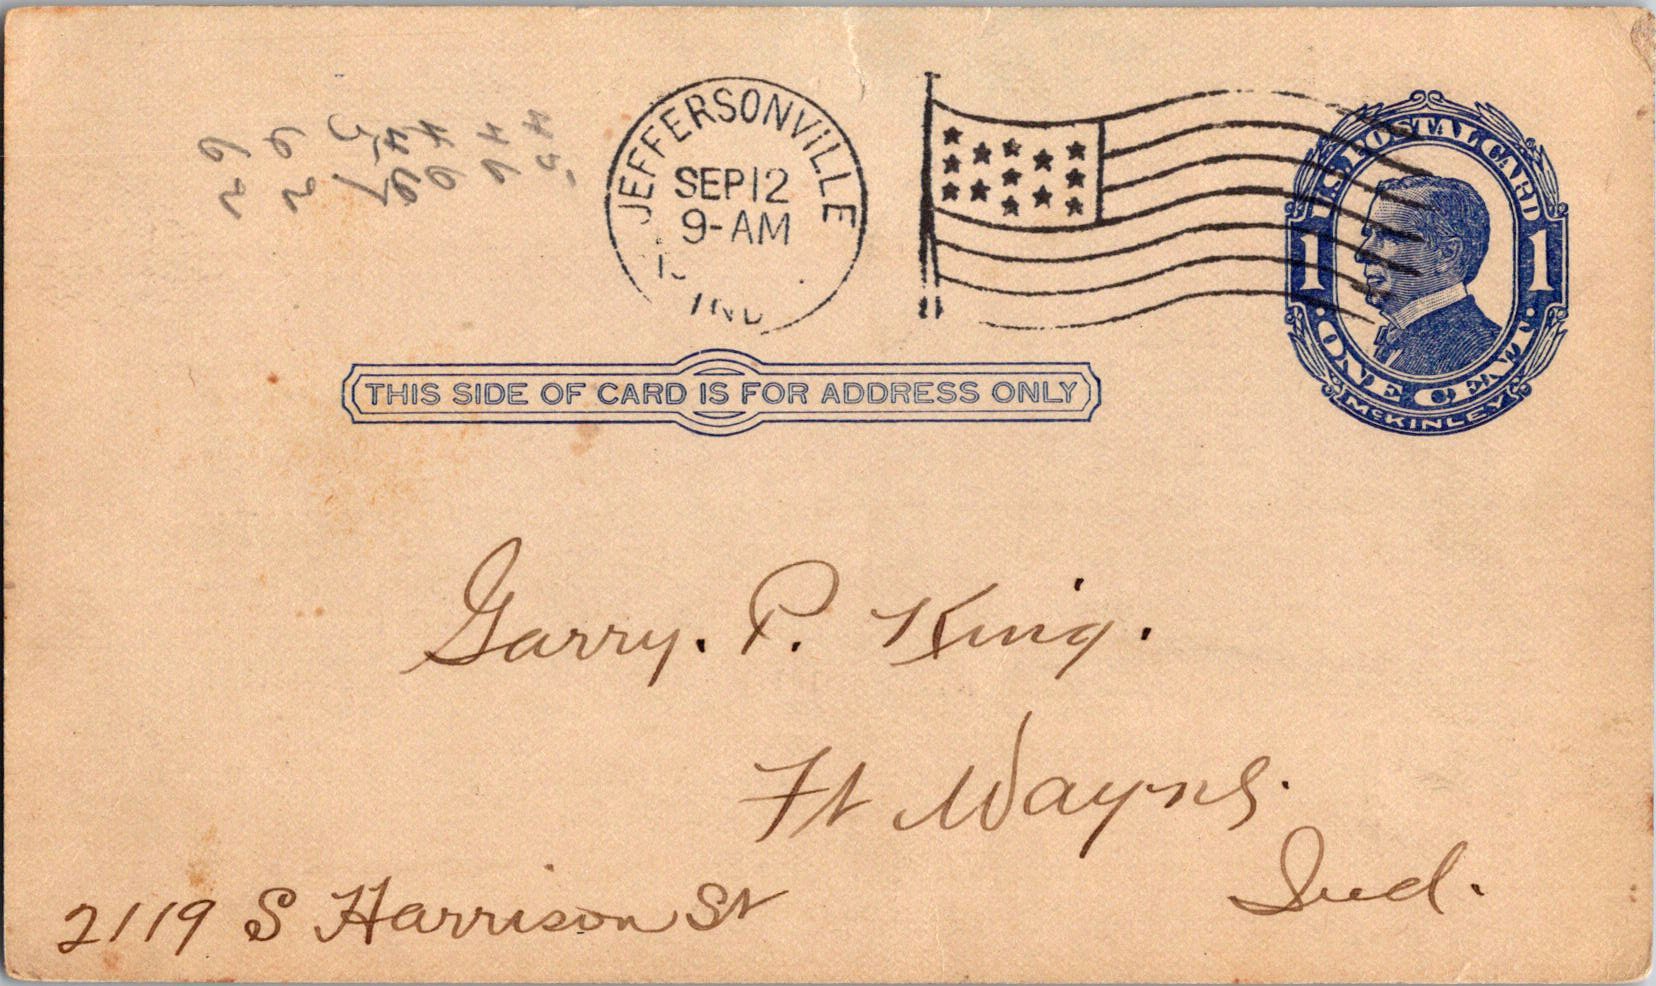 JEFFERSONVILLE
SEP 12
9-AM
IND
U.S. POSTAL CARD
1 1
ONE CENT
McKINLEY
THIS SIDE OF CARD IS FOR ADDRESS ONLY
Garry. P. King.
Ft Wayne.
Ind.
2119 S Harrison St